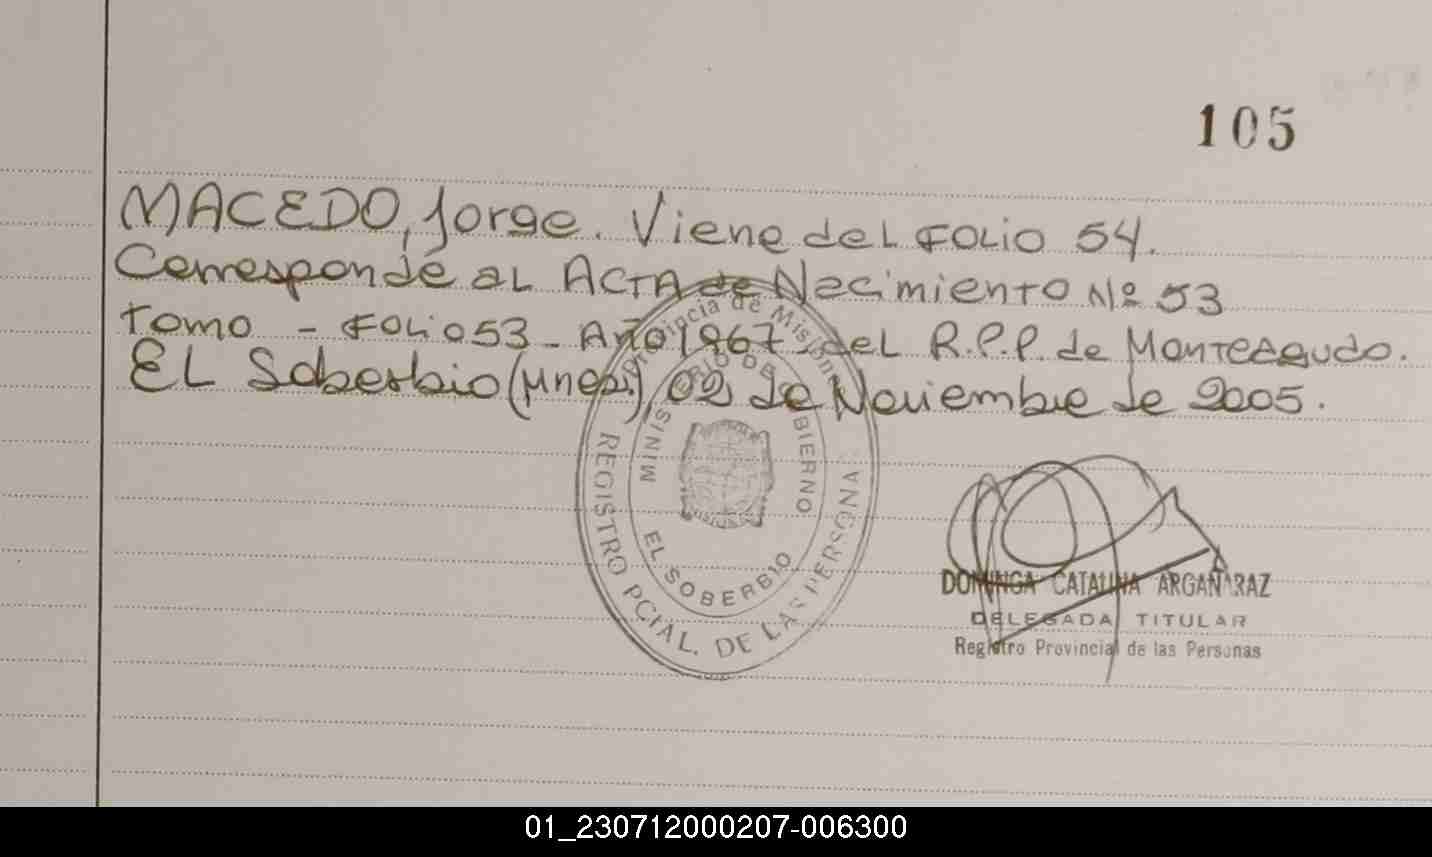 105
MACEDO, Jorge. Viene del FOLIO 54.
Corresponde al ACTA de Nacimiento Nº 53
Tomo - Folio 53 - Año 1967 - del R.P.P. de Monteagudo.
EL Soberbio (Mnes), 02 de Noviembre de 2005.
Provincia de Misiones
MINISTERIO DE GOBIERNO
EL SOBERBIO
REGISTRO PCIAL. DE LAS PERSONAS
DOMINGA CATALINA ARGAÑARAZ
DELEGADA TITULAR
Registro Provincial de las Personas
01_230712000207-006300